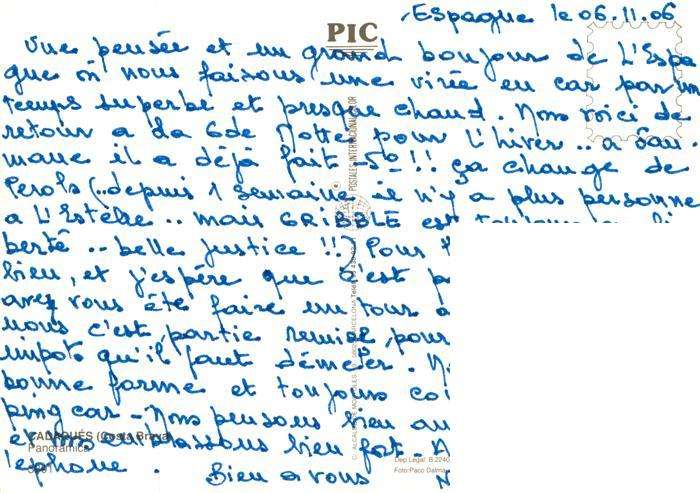 Espagne le 06.11.06
PIC
Une pensée et un grand bonjour de L'Espa
gne où nous faisons une virée en car par un
temps superbe et presque chaud. Nous voici de
retour a La Gde Motte pour l'hiver.. a Sau.
mane il a déjà fait -5° !! ça change de
Perols (..depuis 1 semaine il n'y a plus personne
a L'Estelle.. mais GRIBBLE est
berté .. belle justice !!) Pour
bien, et j'espère que c'est
avez vous été faire un tour
nous c'est partie remise, pour
impots qu'il faut démêler.
bonne forme et toujours
ping car - Nous pensons bien
et vous embrassons bien fort -
léphone . Bien a vous
POSTALES INTERNACIONAL COLOR
BARCELONA
CADAQUÉS (Costa Brava)
Panorámica
Dep. Legal B 2240
Foto: Paco Dalma